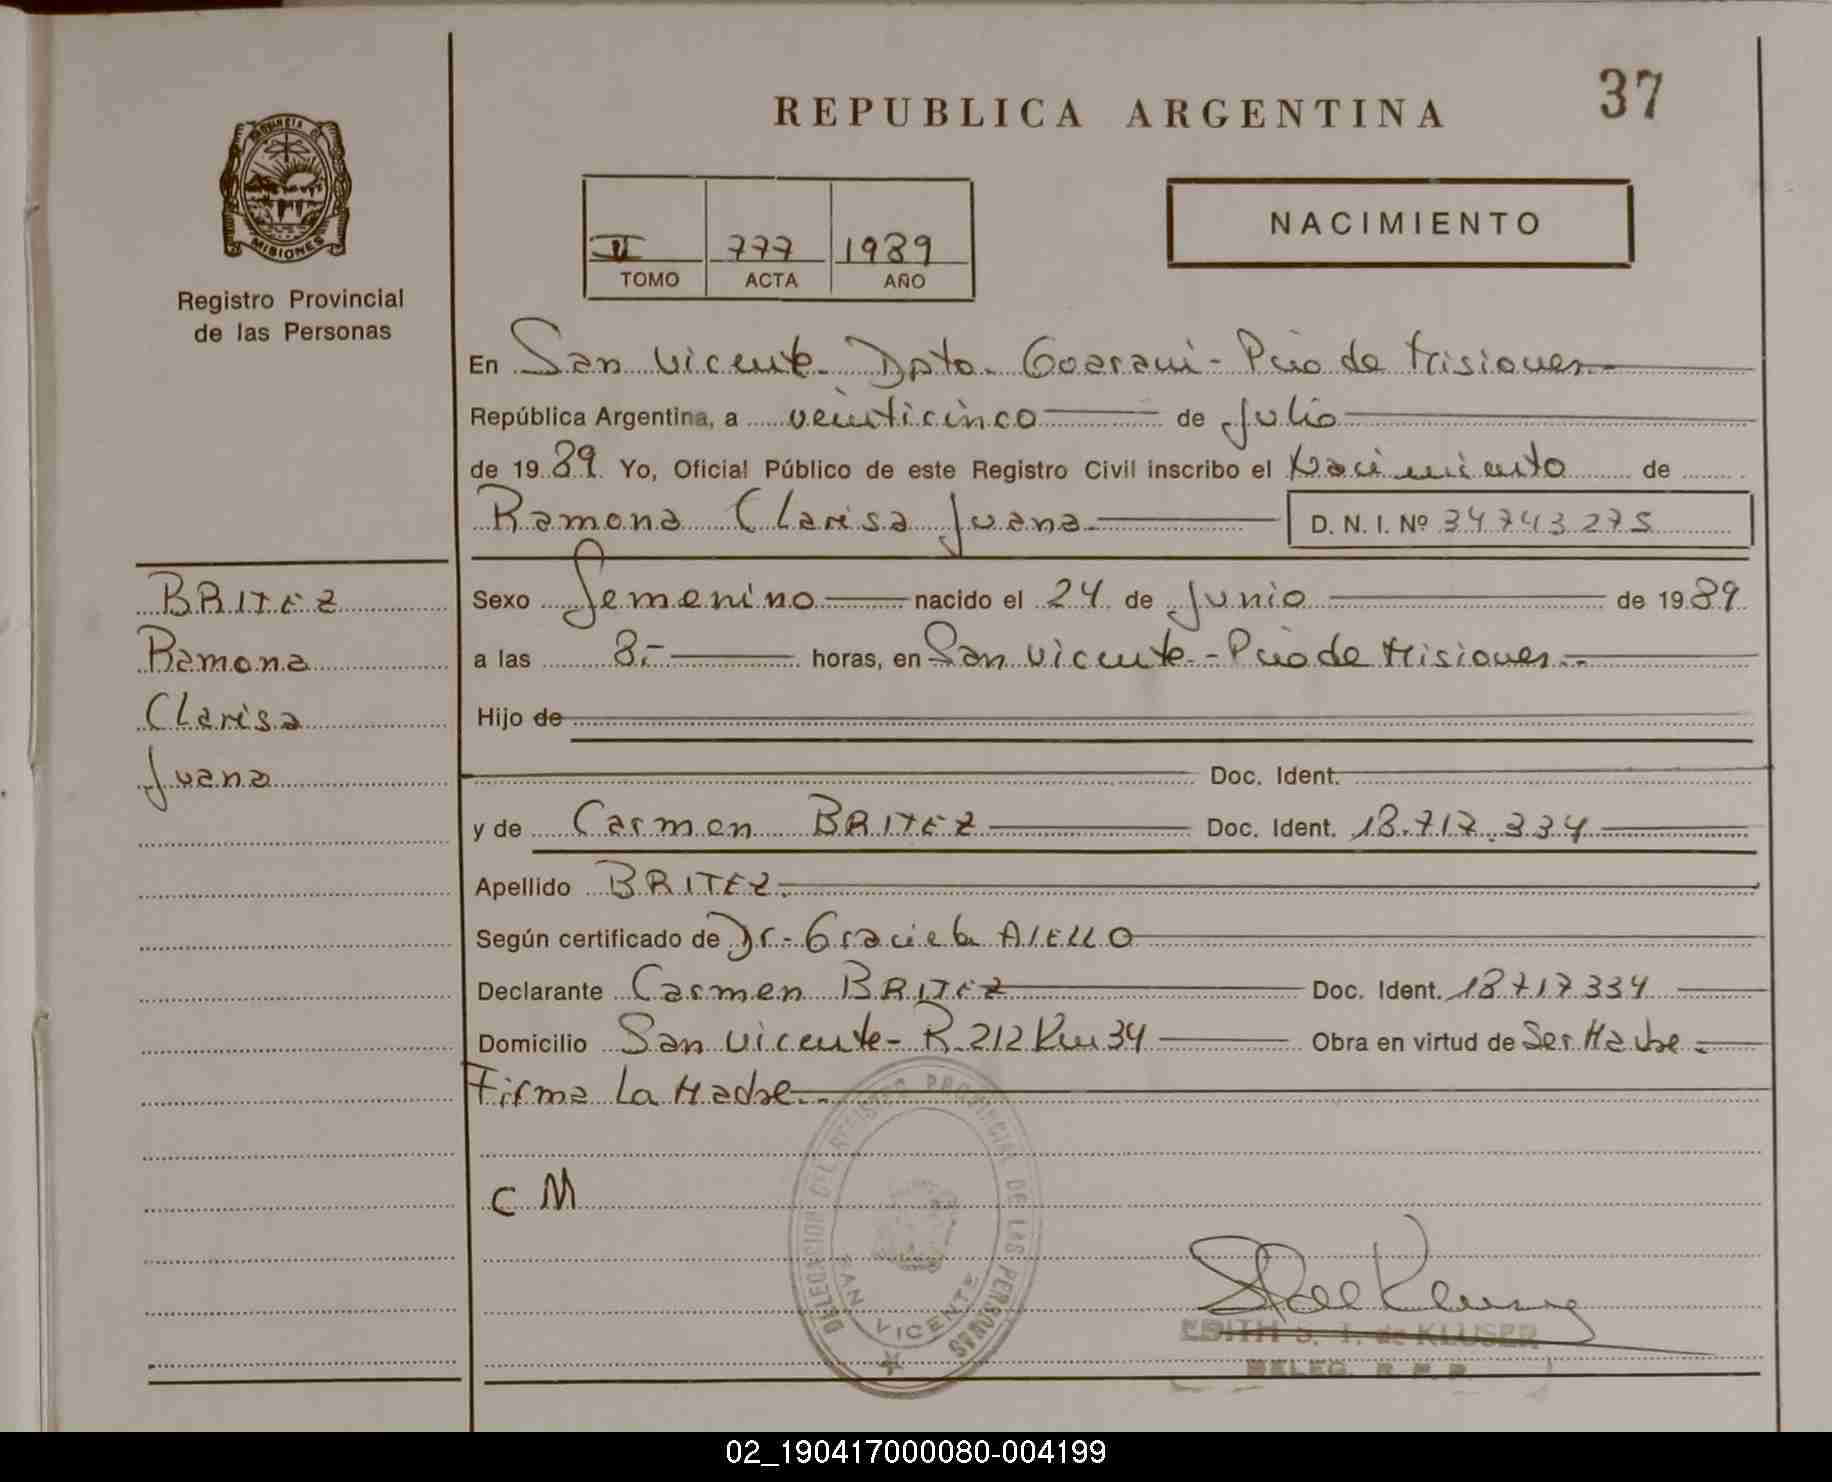 37
REPUBLICA ARGENTINA
PROVINCIA DE
MISIONES
Registro Provincial
de las Personas
II 777 1989
TOMO ACTA AÑO
NACIMIENTO
En San Vicente Dpto. Guarani - Pcia de Misiones
República Argentina, a veinticinco de Julio
de 1989 Yo, Oficial Público de este Registro Civil inscribo el Nacimiento de
Ramona Clarisa Juana D. N. I. Nº 34743275
BRITEZ
Ramona
Clarisa
Juana
Sexo Femenino nacido el 24 de Junio de 1989
a las 8.- horas, en San Vicente - Pcia de Misiones
Hijo de
Doc. Ident.
y de Carmen BRITEZ Doc. Ident. 18.717.334
Apellido BRITEZ
Según certificado de Dr. Graciela AIELLO
Declarante Carmen BRITEZ Doc. Ident. 18717334
Domicilio San Vicente - R. 212 Km 34 Obra en virtud de Ser Madre
Firma La Madre
C M
DELEGACION DEL REGISTRO PROVINCIAL DE LAS PERSONAS
SAN VICENTE
EDITH S. T. de KLUSER
DELEG. R. P. P.
02_190417000080-004199